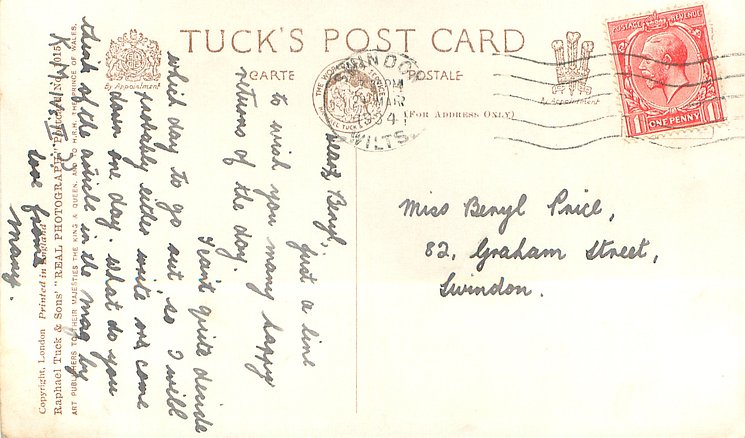 TUCK'S POST CARD
CARTE POSTALE
By Appointment
By Appointment
(FOR ADDRESS ONLY)
POSTAGE REVENUE
ONE PENNY
SWINDON
PM
MAR
1934
WILTS.
Dear Beryl,
Just a line
to wish you many happy
returns of the day.
I can't quite decide
which day to go out so I will
probably either write or come
down one day. What do you
think of the article in the mag by
love from
Mary.
Miss Beryl Price,
82, Graham Street,
Swindon.
Copyright, London Printed in England
Raphael Tuck & Sons' "REAL PHOTOGRAPH" Postcard No.
ART PUBLISHERS TO THEIR MAJESTIES THE KING & QUEEN, AND TO H.R.H. THE PRINCE OF WALES.